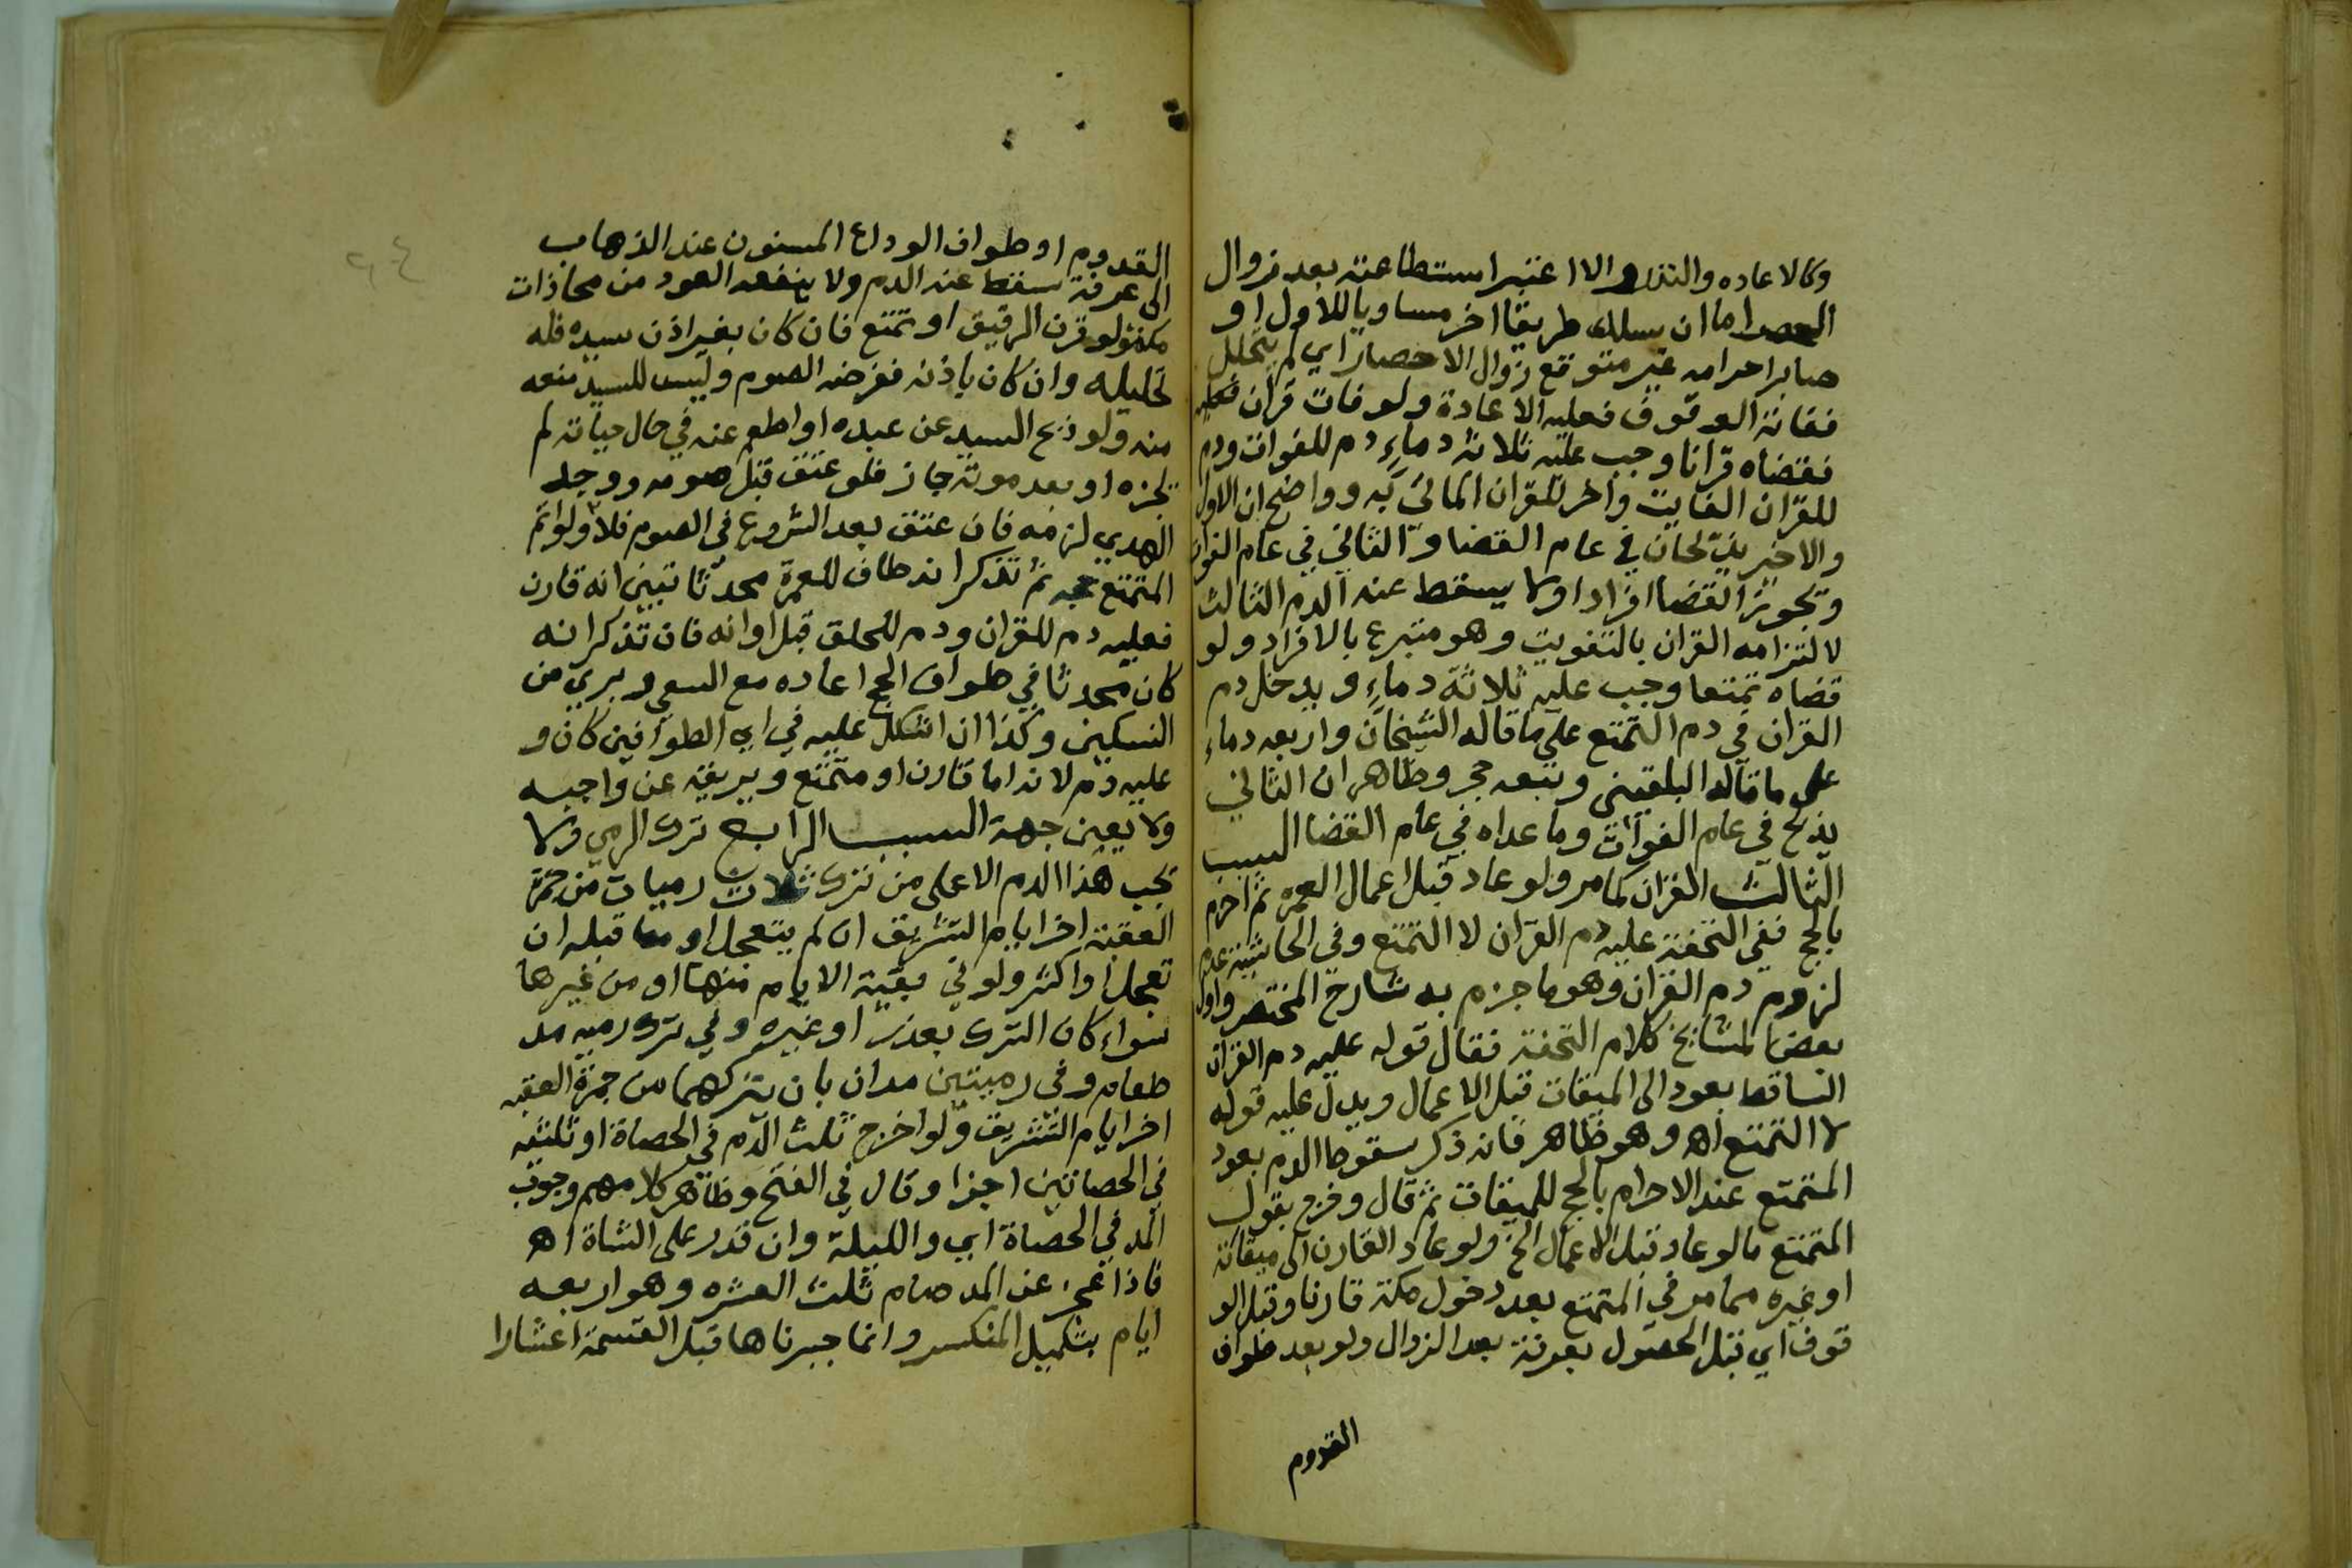 وكالاعاده والنذر والا اعتبر استطاعته بعد زوال
الحصر اما ان سلك طريقا اخر مساويا للاول او
صابر احرامه غير متوقع زوال الاحصار اي لم يتحلل
ففاته الوقوف فعليه الاعادة ولو فات قران فعليه
فقضاه قرانا وجب عليه ثلاثة دماء دم للفوات ودم
للقران الفايت واخر للقران الماتي به وواضح ان الاول
والاخير يذبحان في عام القضا والثاني في عام الفوات
وتجويز القضا افرادا ولا يسقط عنه الدم الثالث
لالتزامه القران بالتفويت وهو متبرع بالافراد ولو
قضاه تمتعا وجب عليه ثلاثة دماء ويدخل دم
القران في دم التمتع على ما قاله الشيخان واربعه دماء
على ما قاله البلقيني وتبعه حجر وظاهر ان الثاني
يذبح في عام الفوات وما عداه في عام القضا السبب
الثالث القران كما مر ولو عاد قبل اعمال العمرة ثم احرم
بالحج ففي التحفة عليه دم القران لا التمتع وفي الحاشية عدم
لزوم دم القران وهو ما جزم به شارح المختصر واول
بعض المشايخ كلام التحفة فقال قوله عليه دم القران
الساقط بعود الى الميقات قبل الاعمال ويدل عليه قوله
لا التمتع اه وهو ظاهر فانه ذكر سقوط الدم بعود
المتمتع عند الاحرام بالحج للميقات ثم قال وخرج بقول
المتمتع ما لو عاد قبل الاعمال الخ ولو عاد القارن الى ميقاته
او غيره مما مر في المتمتع بعد دخول مكة قارنا وقبل الو
قوف اي قبل الحصول بعرفة بعد الزوال ولو بعد طواف
القدوم
القدوم او طواف الوداع المسنون عند الذهاب
الى عرفة سقط عنه الدم ولا ينفعه العود من محاذات
مكة ولو قرن الرقيق او تمتع فان كان بغير اذن سيده فله
تحليله وان كان باذنه ففرضه الصوم وليس للسيد منعه
منه ولو ذبح السيد عن عبده او اطعم عنه في حال حياته لم
يجزه او بعد موته جاز فلو عتق قبل صومه ووجد
الهدي لزمه فان عتق بعد الشروع في الصوم فلا ولو اتم
المتمتع حجه ثم تذكر انه طاف للعمرة محدثا تبين انه قارن
فعليه دم للقران ودم للحلق قبل اوانه فان تذكر انه
كان محدثا في طواف الحج اعاده مع السعي وبري من
النسكين وكذا ان اشكل عليه في اي الطوافين كان و
عليه دم لانه اما قارن او متمتع ويريقه عن واجبه
ولا يعين جهة السبب الرابع ترك الرمي ولا
يجب هذا الدم الا على من ترك ثلاث رميات من جمرة
العقبة اخر ايام التشريق ان لم يتعجل او مما قبله ان
تعجل او اكثر ولو في بقية الايام منها او من غيرها
سواء كان الترك بعذر او غيره وفي ترك رميه مد
طعام وفي رميتين مدان بان يتركهما من جمرة العقبه
اخر ايام التشريق ولو اخرج ثلث الدم في الحصاة او ثلثيه
في الحصاتين اجزا وقال في الفتح وظاهر كلامهم وجوب
المد في الحصاة اي والليلة وان قدر على الشاة اه
فاذا عجز عن المد صام ثلث العشره وهو اربعه
ايام بتكميل المنكسر وانما جبرناها قبل القسمة اعشارا